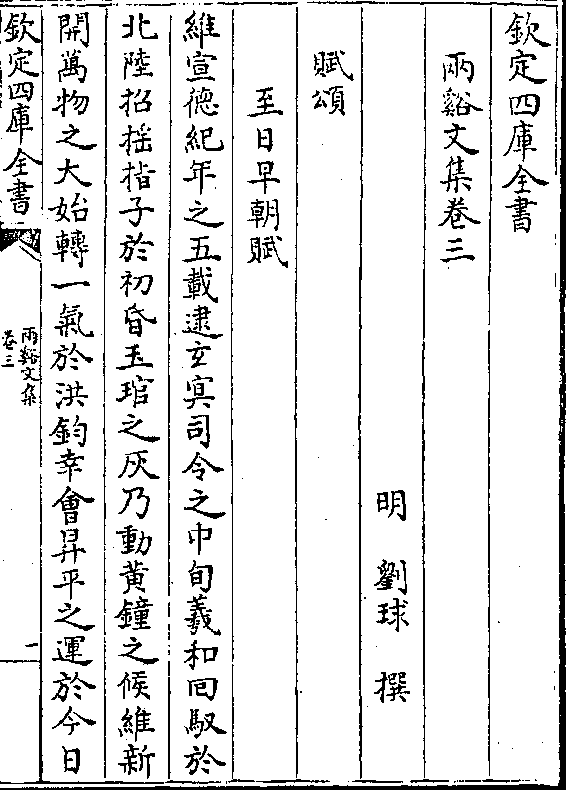 欽定四庫全書
兩谿文集卷三
明 劉球 撰
賦頌
至日早朝賦
維宣德紀年之五載逮玄冥司令之中旬羲和回馭於
北陸招揺指子於初昏玉琯之灰乃動黃鐘之候維新
開萬物之大始轉一氣於洪鈞幸會昇平之運於今日
欽定四庫全書
兩谿文集
卷三
一